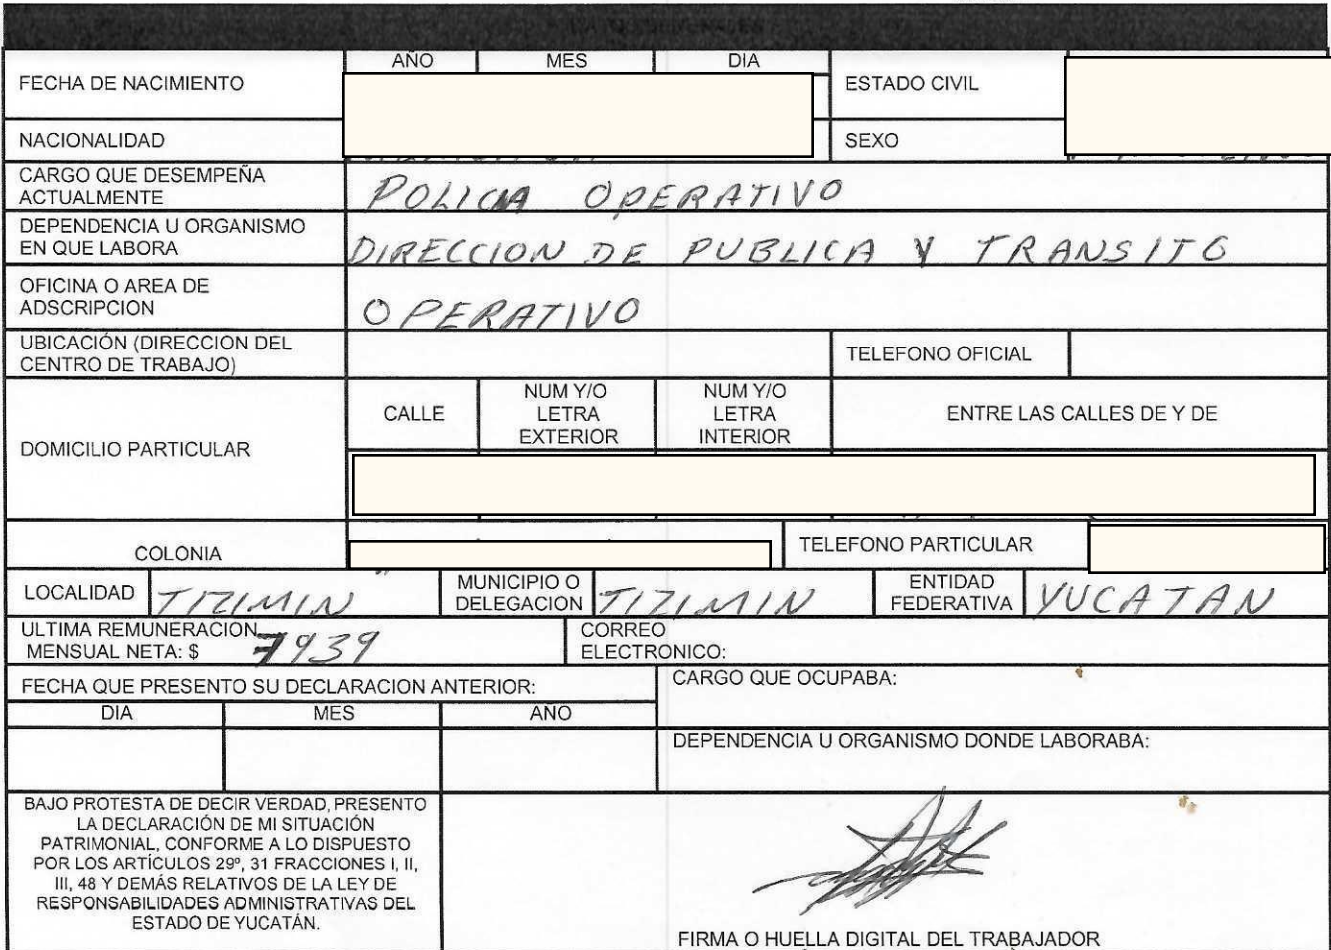 AÑO MES DIA
FECHA DE NACIMIENTO ESTADO CIVIL
NACIONALIDAD SEXO
CARGO QUE DESEMPEÑA
ACTUALMENTE
POLICIA OPERATIVO
DEPENDENCIA U ORGANISMO
EN QUE LABORA
DIRECCION DE PUBLICA Y TRANSITO
OFICINA O AREA DE
ADSCRIPCION
OPERATIVO
UBICACIÓN (DIRECCION DEL
CENTRO DE TRABAJO)
TELEFONO OFICIAL
DOMICILIO PARTICULAR
CALLE
NUM Y/O
LETRA
EXTERIOR
NUM Y/O
LETRA
INTERIOR
ENTRE LAS CALLES DE Y DE
COLONIA
TELEFONO PARTICULAR
LOCALIDAD TIZIMIN
MUNICIPIO O
DELEGACION TIZIMIN
ENTIDAD
FEDERATIVA YUCATAN
ULTIMA REMUNERACION
MENSUAL NETA: $ 7939
CORREO
ELECTRONICO:
FECHA QUE PRESENTO SU DECLARACION ANTERIOR:
DIA MES ANO
CARGO QUE OCUPABA:
DEPENDENCIA U ORGANISMO DONDE LABORABA:
BAJO PROTESTA DE DECIR VERDAD, PRESENTO
LA DECLARACIÓN DE MI SITUACIÓN
PATRIMONIAL, CONFORME A LO DISPUESTO
POR LOS ARTÍCULOS 29º, 31 FRACCIONES I, II,
III, 48 Y DEMÁS RELATIVOS DE LA LEY DE
RESPONSABILIDADES ADMINISTRATIVAS DEL
ESTADO DE YUCATÁN.
FIRMA O HUELLA DIGITAL DEL TRABAJADOR